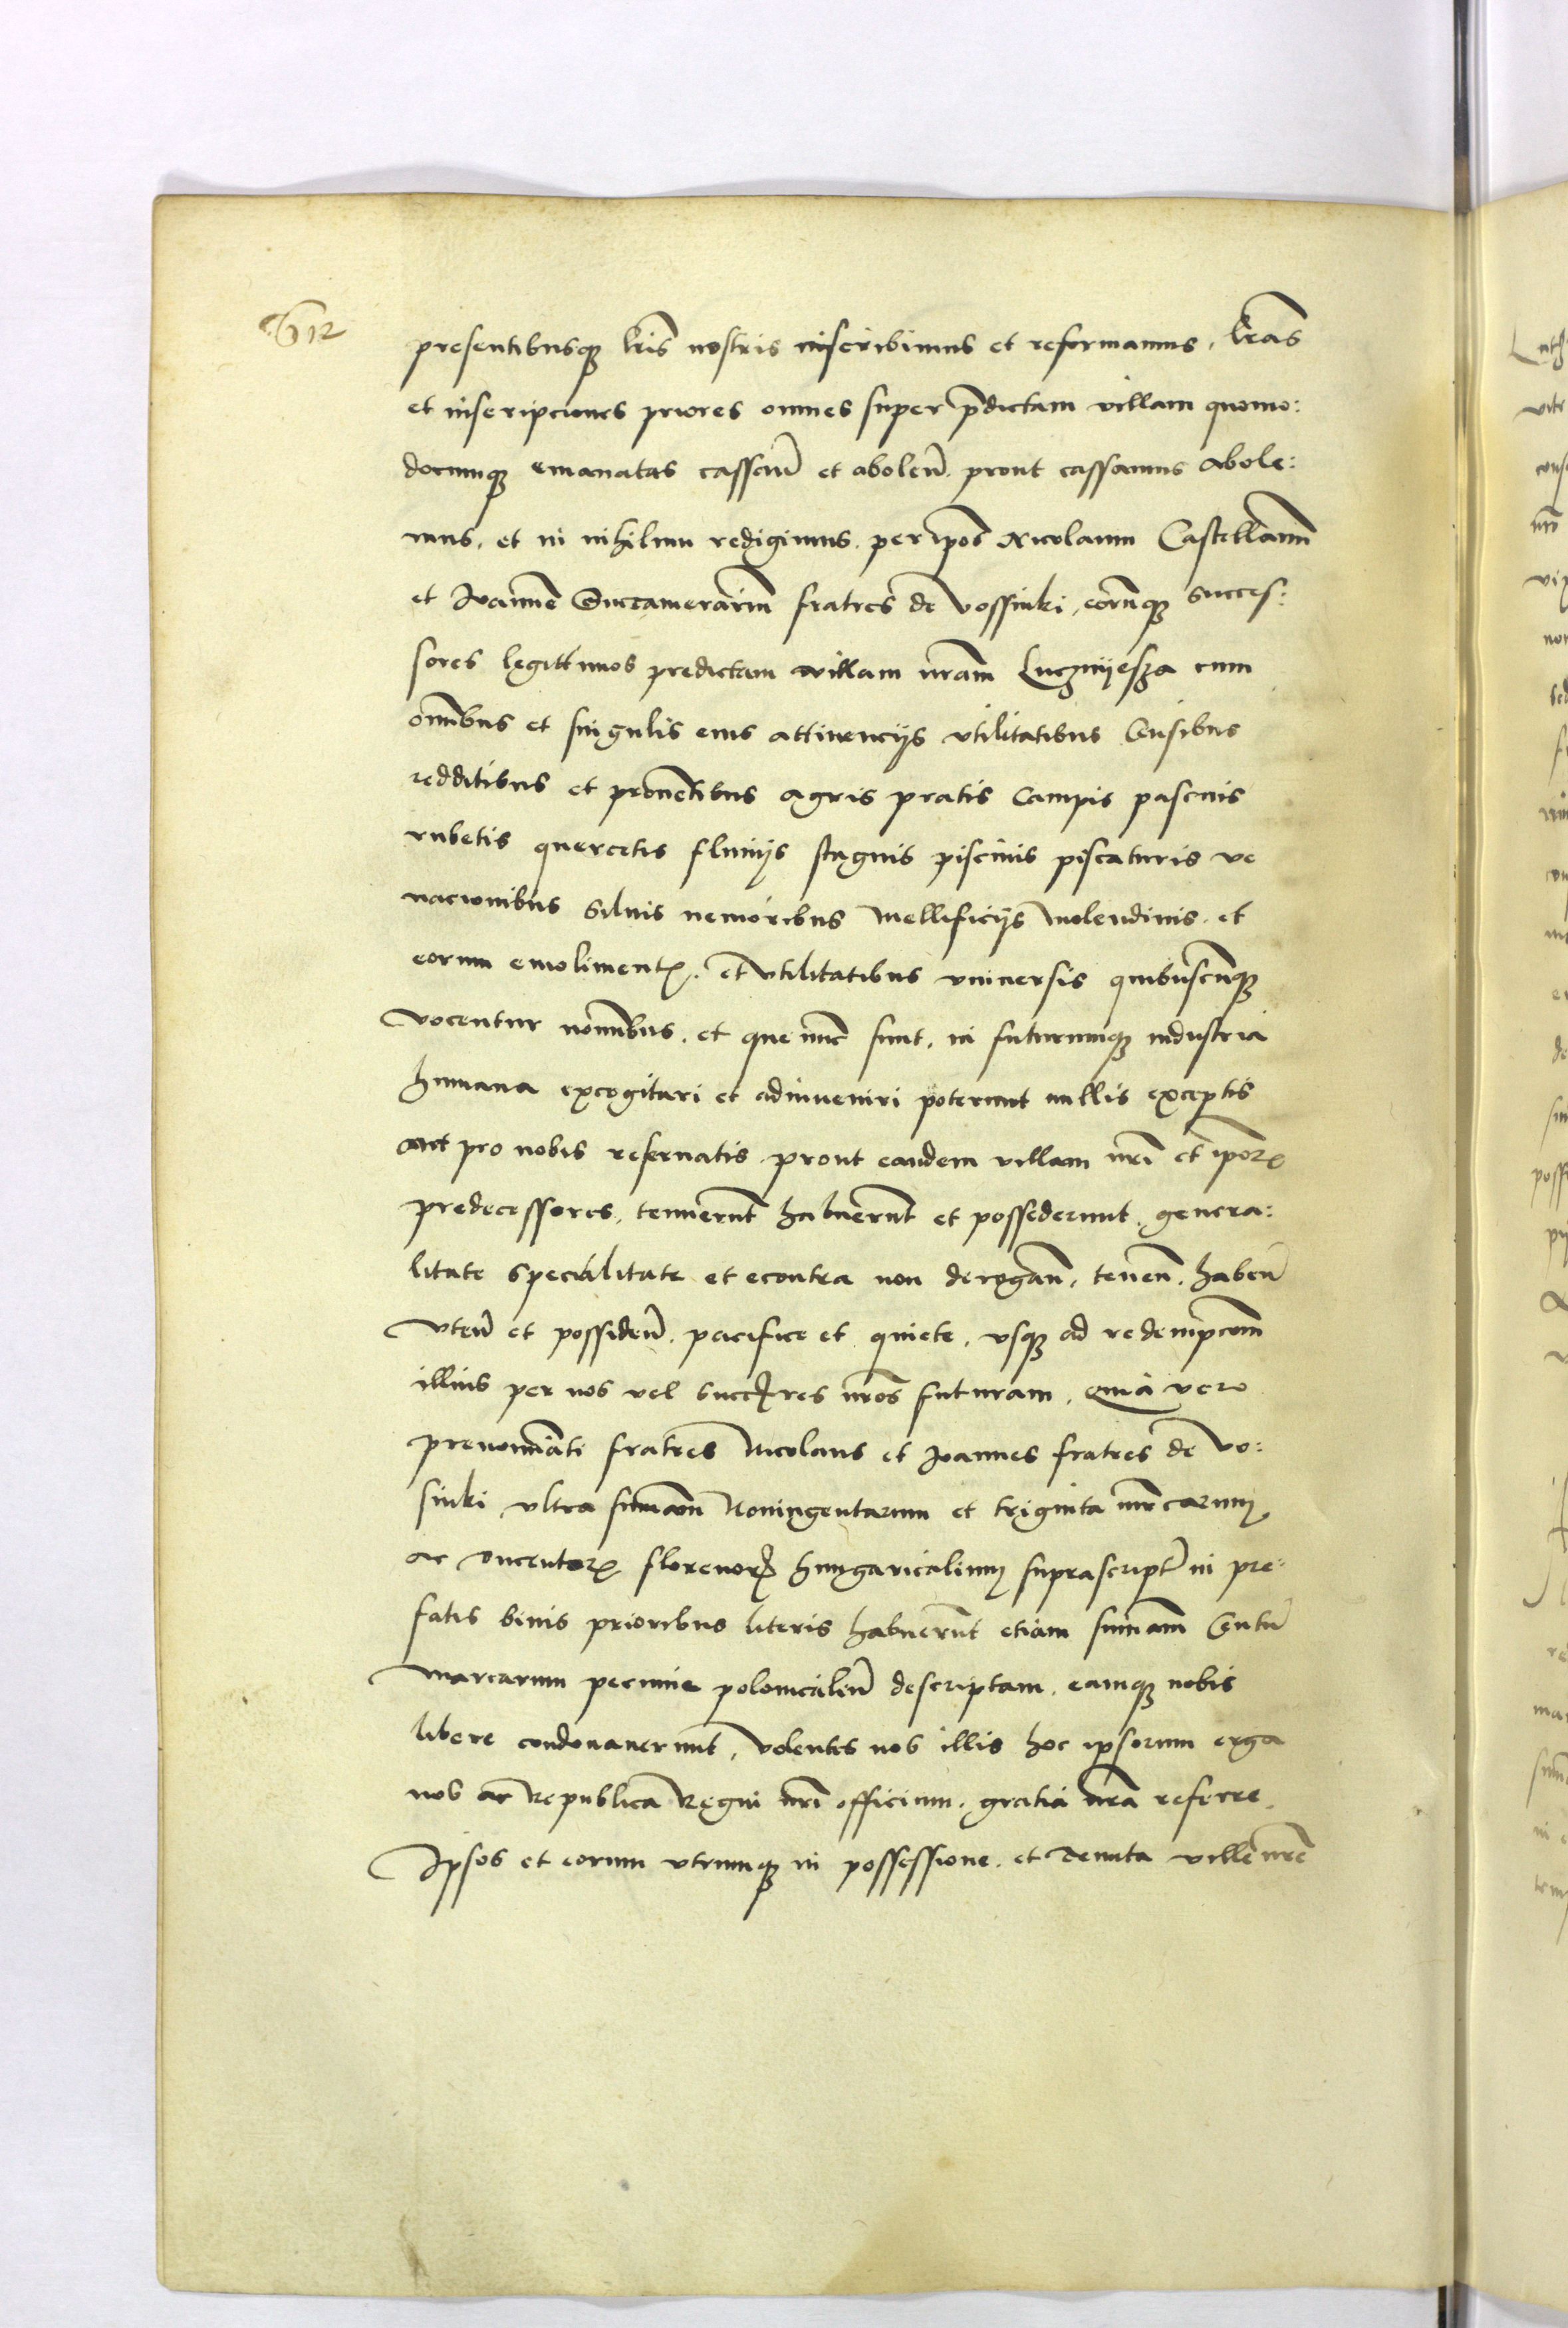 612
presentibusq̃ lr̃is nostris inscribimus et reformamus, lr̃as
et inscripciones priores omnes super p̃dictam villam quomo:
docunq̃ emanatas cassan̄ et abolen̄. prout cassamus abole:
mus, et in nihilum redigimus, per ip̃os Nicolaum Castellanū
et Joannē Succamerariū fratres de vossinki, eorūq̃ succes:
sores legittimos predictam villam nr̃am Luczmijesza cum
omībus et singulis eius attinencijs vtilitatibus Censibus
redditibus et prouētibus agris pratis Campis pascuis
rubetis quercetis fluuijs stagnis piscinis piscaturis ve
nacionibus siluis nemoribus mellificijs molendinis, et
eorum emoliment. et vtilitatibus vniuersis quibuscūq̃
vocentur nomībus, et que nūc sunt, in futurumq̃ industria
humana excogitari et adinueniri poterunt nullis exceptis
aut pro nobis reseruatis prout eandem villam nr̃i et ip̃or
predecessores, tenuerūt habuerūt et possederunt, genera:
litate specialitate et econtra non derogan̄, tenen̄, haben̄
vten̄ et possiden̄. pacifice et quiete, vsq̃ ad redempcōem
illius per nos vel succōres nr̃os futuram, Quia vero
prenomīati fratres Nicolaus et Joannes fratres de vo:
sinki vltra summam Noningentarum et triginta mrcarum
ac ducentor florenor hungaricalium suprascript̄ in pre:
fatis binis prioribus literis habuerūt etiam summam Centū
marcarum pecunie polonicalem̄ descriptam, eamq̃ nobis
libere condonauerunt, volentes nos illis hoc ipsorum erga
nos ac Republicā Regni nr̃i officium, gratia nr̃a referre,
Ipsos et eorum vtrumq̃ in possessione, et tenuta ville nr̃e